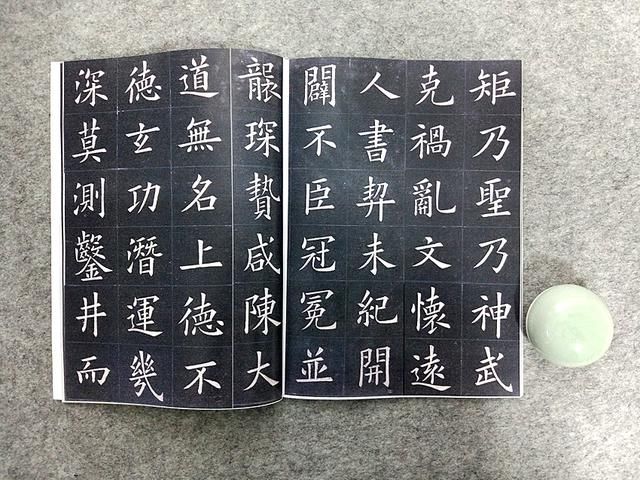 矩乃聖乃神武
克禍亂文懷遠
人書契未紀開
闢不臣冠冕並
襲琛贄咸陳大
道無名上德不
德玄功潛運幾
深莫測鑿井而